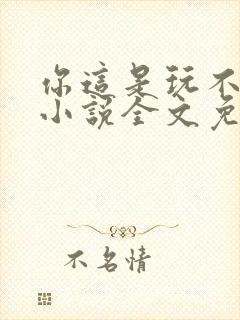 你這是玩不
小說全文免
不名情